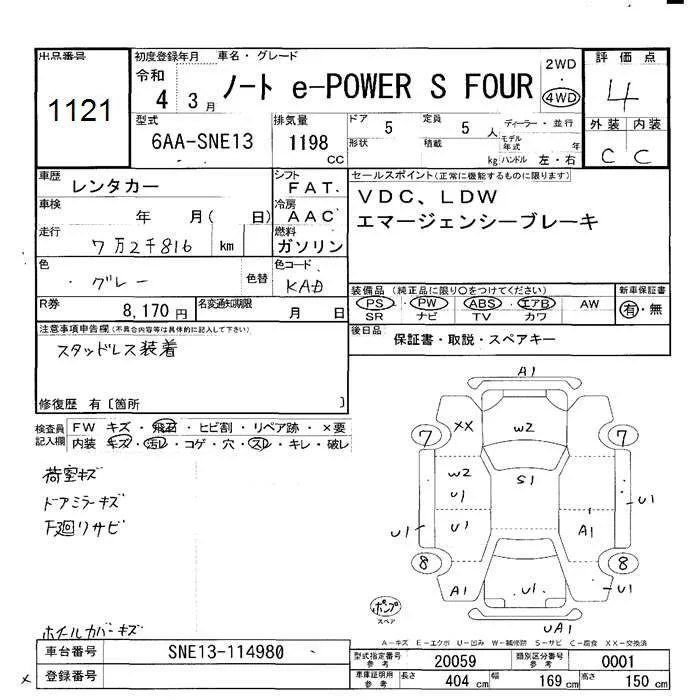 出品番号
1121
初度登録年月 車名・グレード
令和 4 3月 ノート e-POWER S FOUR 2WD ・ 4WD
評価点
4
型式
6AA-SNE13
排気量
1198 CC
ドア 5
定員 5 人
形状
積載 kg
ディーラー・並行
モデル年式 年
ハンドル 左・右
外装 内装
C C
車歴
レンタカー
シフト
FAT.
車検
年 月( 日)
冷房
AAC
走行
7万2千816 km
燃料
ガソリン
色
グレー
色替
色コード
KAD
R券
8,170円
名変通知期限
月 日
セールスポイント(正常に機能するものに限ります)
VDC、LDW
エマージェンシーブレーキ
装備品(純正品に限り○をつけてください)
PS・PW・ABS・エアB・AW
SR ナビ TV カワ
新車保証書
有・無
後日品
保証書・取説・スペアキー
注意事項申告欄(不具合内容等は具体的に記入して下さい)
スタッドレス装着
修復歴 有〔箇所 〕
検査員記入欄
FW キズ・飛石・ヒビ割・リペア跡・×要
内装 キズ・汚レ・コゲ・穴・スレ・キレ・破レ
荷室キズ
ドアミラーキズ
下廻りサビ
ホイルカバーキズ
A1
XX
W2
7
7
W2
U1
S1
U1
U1
U1
A1
8
8
A1
U1
U1
ポンプ
スペア
UA1
A-キズ E-エクボ U-凹み W-補修跡 S-サビ C-腐食 XX-交換済
車台番号 SNE13-114980
登録番号
型式指定番号 参考 20059
類別区分番号 参考 0001
車庫証明用 参考 長さ 404 cm 幅 169 cm 高さ 150 cm